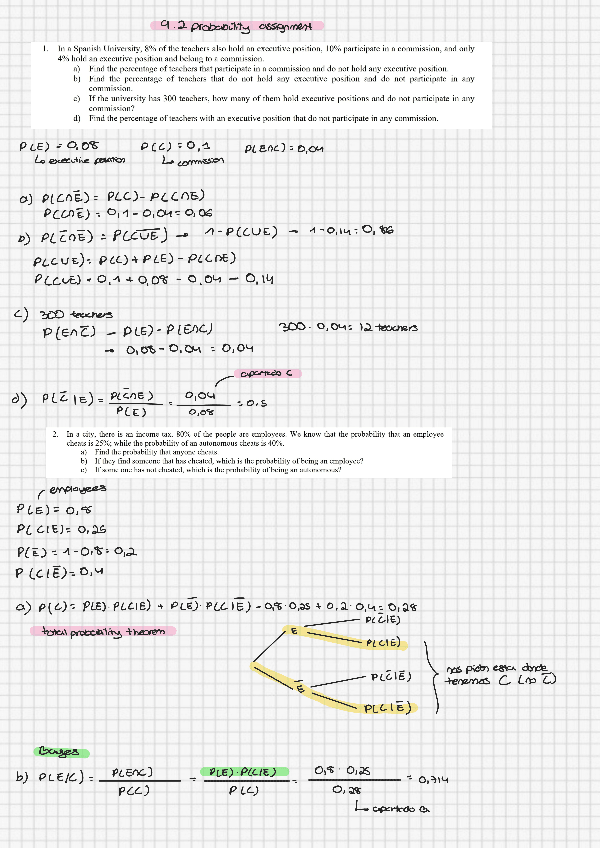 9.2 probability assignment
1. In a Spanish University, 8% of the teachers also hold an executive position, 10% participate in a commission, and only
4% hold an executive position and belong to a commission.
a) Find the percentage of teachers that participate in a commission and do not hold any executive position.
b) Find the percentage of teachers that do not hold any executive position and do not participate in any
commission.
c) If the university has 300 teachers, how many of them hold executive positions and do not participate in any
commission?
d) Find the percentage of teachers with an executive position that do not participate in any commission.
P(E) = 0,08 P(C) = 0,1 P(E∩C) = 0,04
↳ executive position ↳ commission
a) P(C∩E̅) = P(C) - P(C∩E)
P(C∩E̅) = 0,1 - 0,04 = 0,06
b) P(C̅∩E̅) = P(C̅U̅E̅) → 1-P(CUE) → 1-0,14 = 0,86
P(CUE) = P(C) + P(E) - P(C∩E)
P(CUE) = 0,1 + 0,08 - 0,04 = 0,14
c) 300 teachers
P(E∩C̅) = P(E) - P(E∩C) 300 · 0,04 = 12 teachers
→ 0,08 - 0,04 = 0,04
apartado c
d) P(C̅|E) = P(C̅∩E) / P(E) = 0,04 / 0,08 = 0,5
2. In a city, there is an income tax. 80% of the people are employees. We know that the probability that an employee
cheats is 25%; while the probability of an autonomous cheats is 40%.
a) Find the probability that anyone cheats
b) If they find someone that has cheated, which is the probability of being an employee?
c) If some one has not cheated, which is the probability of being an autonomous?
employees
P(E) = 0,8
P(C|E) = 0,25
P(E̅) = 1-0,8 = 0,2
P(C|E̅) = 0,4
a) P(C) = P(E) · P(C|E) + P(E̅) · P(C|E̅) = 0,8 · 0,25 + 0,2 · 0,4 = 0,28
total probability theorem
P(C̅|E)
E
P(C|E)
nos piden esta donde
tenemos C (no C̅)
P(C̅|E̅)
E̅
P(C|E̅)
Bayes
b) P(E/C) = P(E∩C) / P(C) = P(E) · P(C|E) / P(C) = 0,8 · 0,25 / 0,28 = 0,714
↳ apartado a